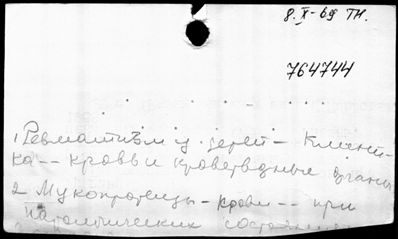 8. X-69 ТН.
764744
1. Ревматизм у детей - Клини-
ка -- кровь и кроветворные органы
2 Мукопротеиды - крови -- при
патологических состояниях